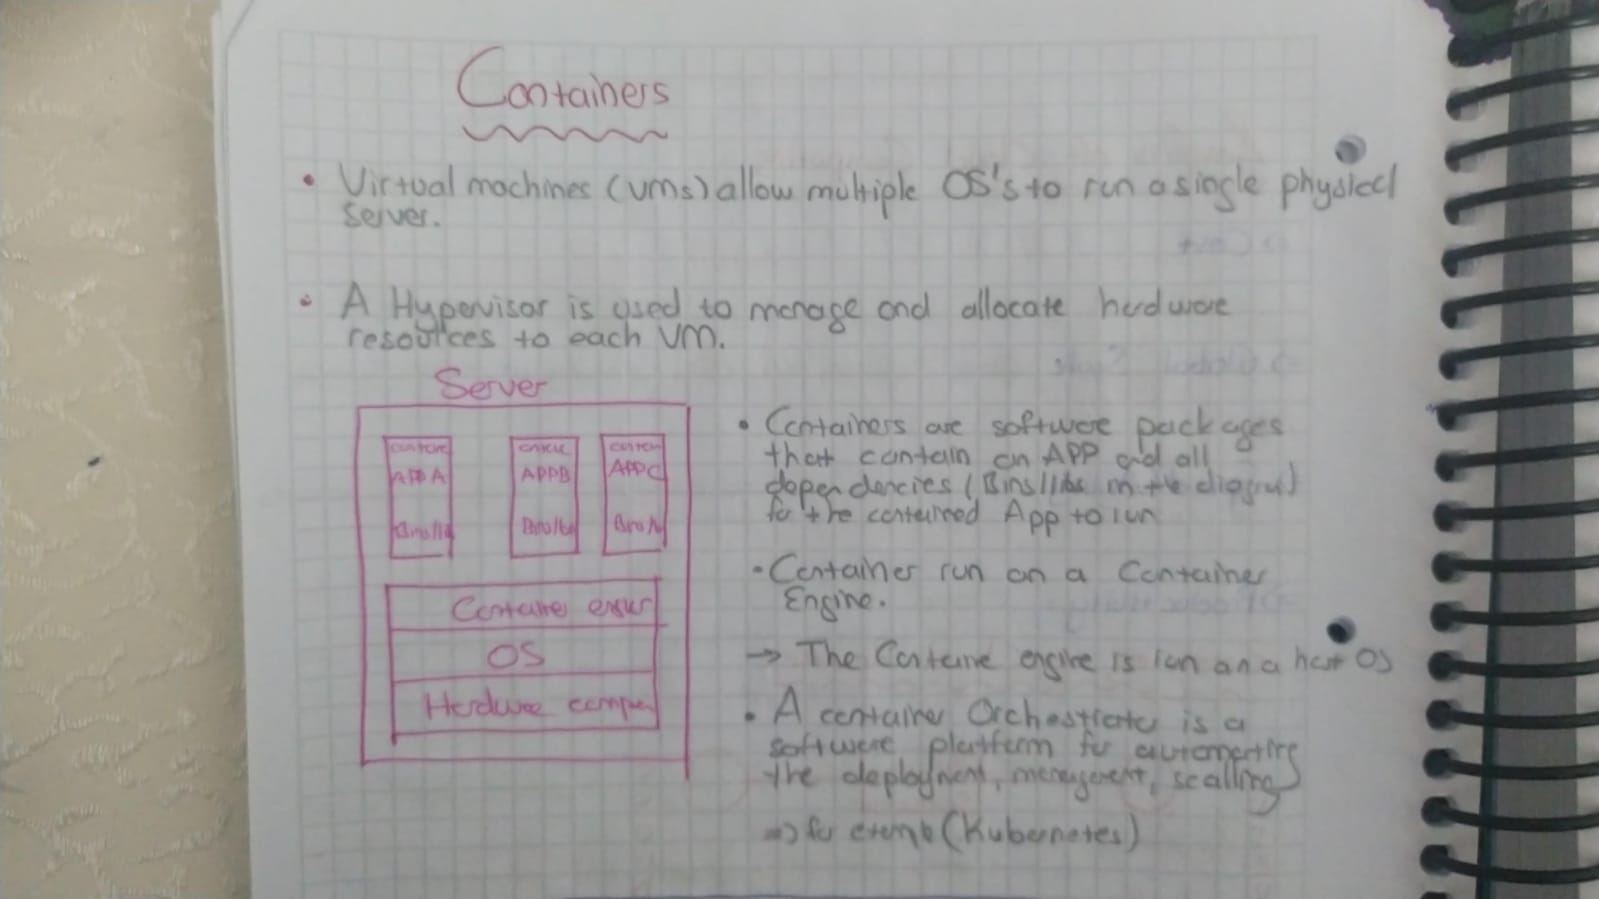 Containers
• Virtual machines (VMs) allow multiple OS's to run a single physical
server.
• A Hypervisor is used to manage and allocate hardware
resources to each VM.
Server
APP A
APPB
APPC
Container
OS
Hardware
• Containers are software packages
that contain an APP and all
dependencies (Bins/libs in the diagram)
for the contained App to run
• Container run on a Container
Engine.
→ The Container engine is run on a host OS
• A container Orchestrator is a
software platform for automating
the deployment, management, scalling
⇒ for (Kubernetes)